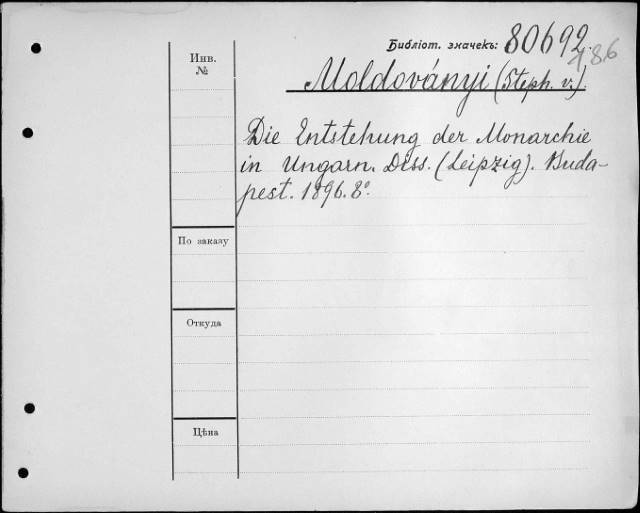 Библіот. значекъ: 80692.
186
Инв.
№
Moldoványi (Steph. v.).
Die Entstehung der Monarchie
in Ungarn. Diss. (Leipzig). Buda-
pest. 1896. 8º.
По заказу
Откуда
Цѣна